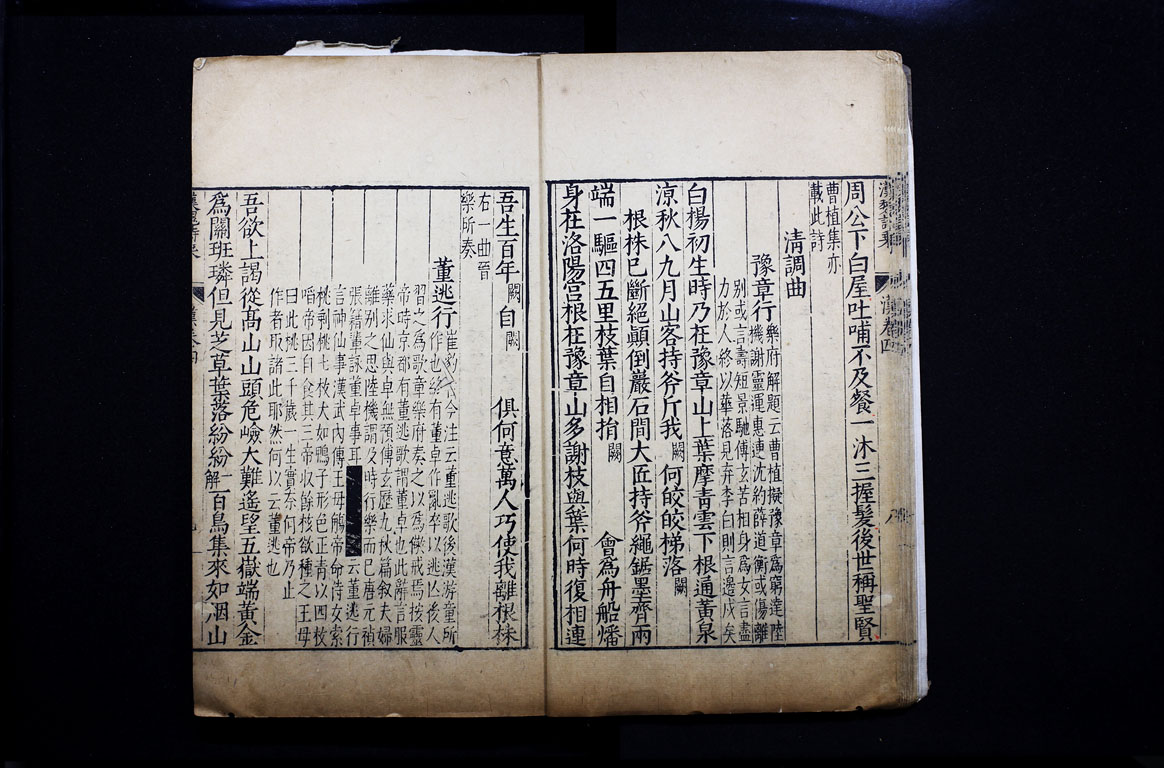 漢魏詩乘 漢卷四 八
周公下白屋吐哺不及餐一沐三握髮後世稱聖賢
曹植集亦
載此詩
清調曲
豫章行 樂府解題云曹植擬豫章為窮達陸
機謝靈運惠連沈約薛道衡或傷離
別或言壽短景馳傅玄苦相身為女言盡
力於人終以華落見弃李白則言邊戍矣
白楊初生時乃在豫章山上葉摩青雲下根通黃泉
涼秋八九月山客持斧斤我闕何皎皎梯落闕
根株已斷絕顛倒巖石間大匠持斧繩鋸墨齊兩
端一驅四五里枝葉自相捐闕 會為舟船燔
身在洛陽宮根在豫章山多謝枝與葉何時復相連
吾生百年闕自闕 俱何意萬人巧使我離根株
右一曲晉
樂所奏
董逃行 崔豹古今注云董逃歌後漢游童所
作也終有董卓作亂卒以逃亡後人
習之為歌章樂府奏之以為儆戒焉按靈
帝時京都有董逃歌謂董卓也此辭言服
藥求仙與卓無預傅玄歷九秋篇敘夫婦
離別之思陸機謂及時行樂而已唐元禎
張籍董詠董卓事耳 云董逃行
言神仙事漢武內傳王母觴帝命侍女索
桃剩桃七枚大如鴨子形色正青以四枚
啗帝因自食其三帝收餘核欲種之王母
曰此桃三千歲一生實奈何帝乃止
作者取諸此耶然何以云董逃也
吾欲上謁從高山山頭危嶮大難遙望五嶽端黃金
為闕班璘但見芝草葉落紛紛解一百鳥集來如烟山